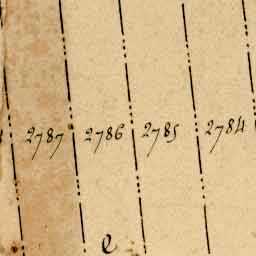 2787 2786 2785 2784
e